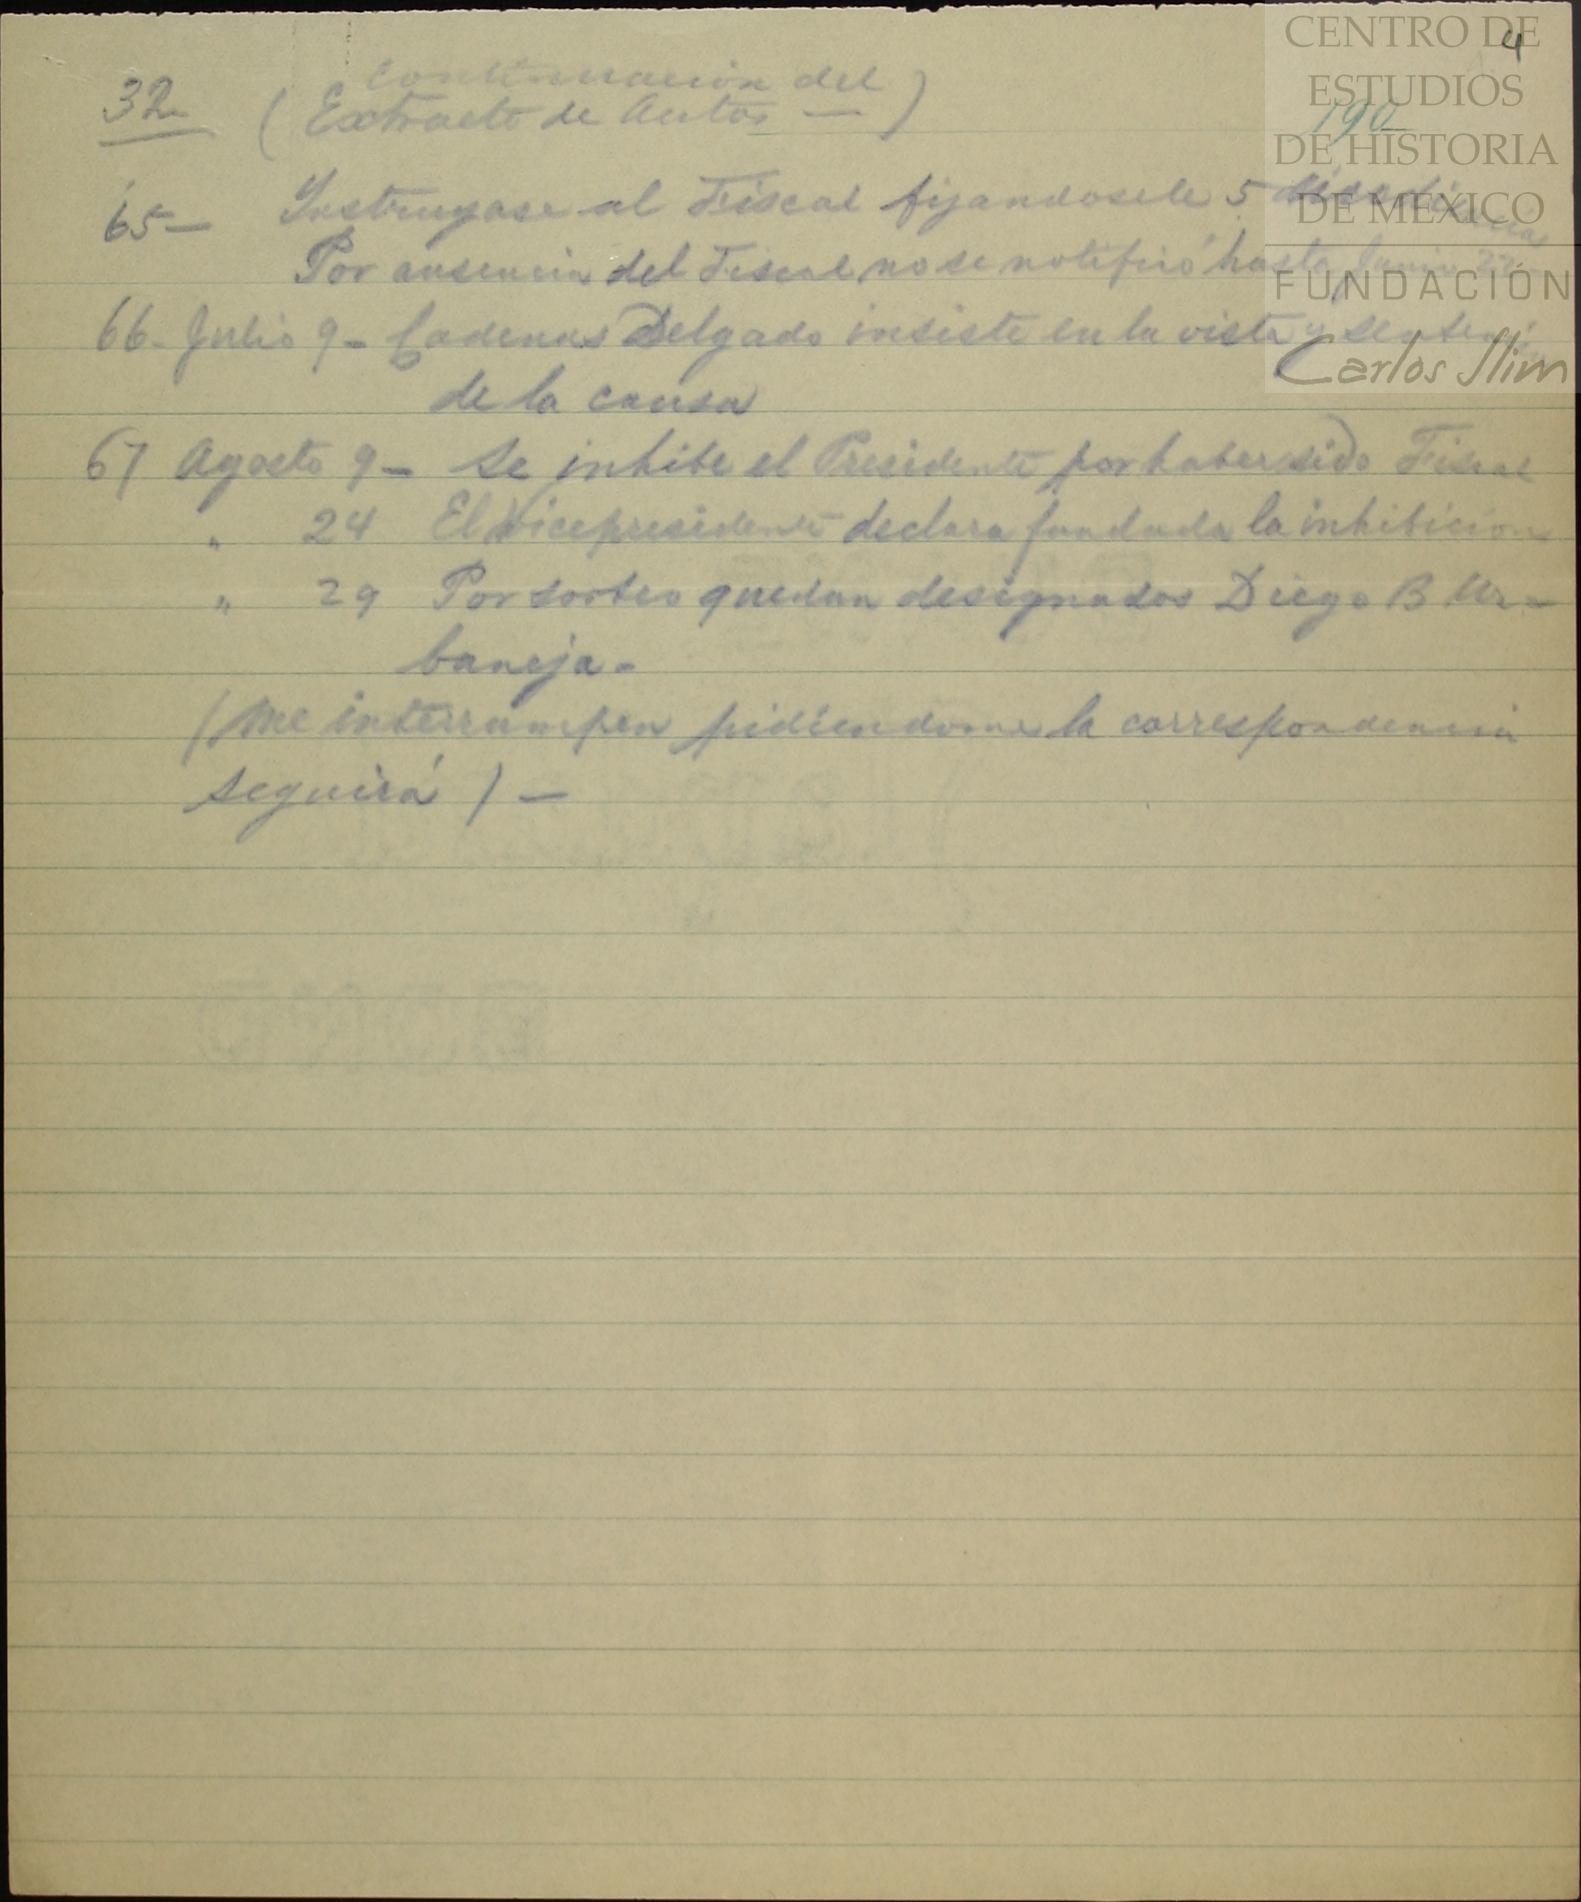 CENTRO DE
ESTUDIOS
DE HISTORIA
DE MÉXICO
FUNDACIÓN
Carlos Slim
4
190
32 Continuación del
( Extracto de Autos — )
65— Instruyase al Fiscal fijandosele 5
Por ausencia del Fiscal no se notificó hasta Junio 22
66- Julio 9- Cadenas Delgado insiste en la vista y sentencia
de la causa
67 Agosto 9- Se inhibe el Presidente por haber sido Fiscal
" 24 El Vicepresidente declara fundada la inhibición
" 29 Por sorteo quedan designados Diego B Ur-
baneja-
(Me interrumpen pidiendome la correspondencia
seguirá ) —